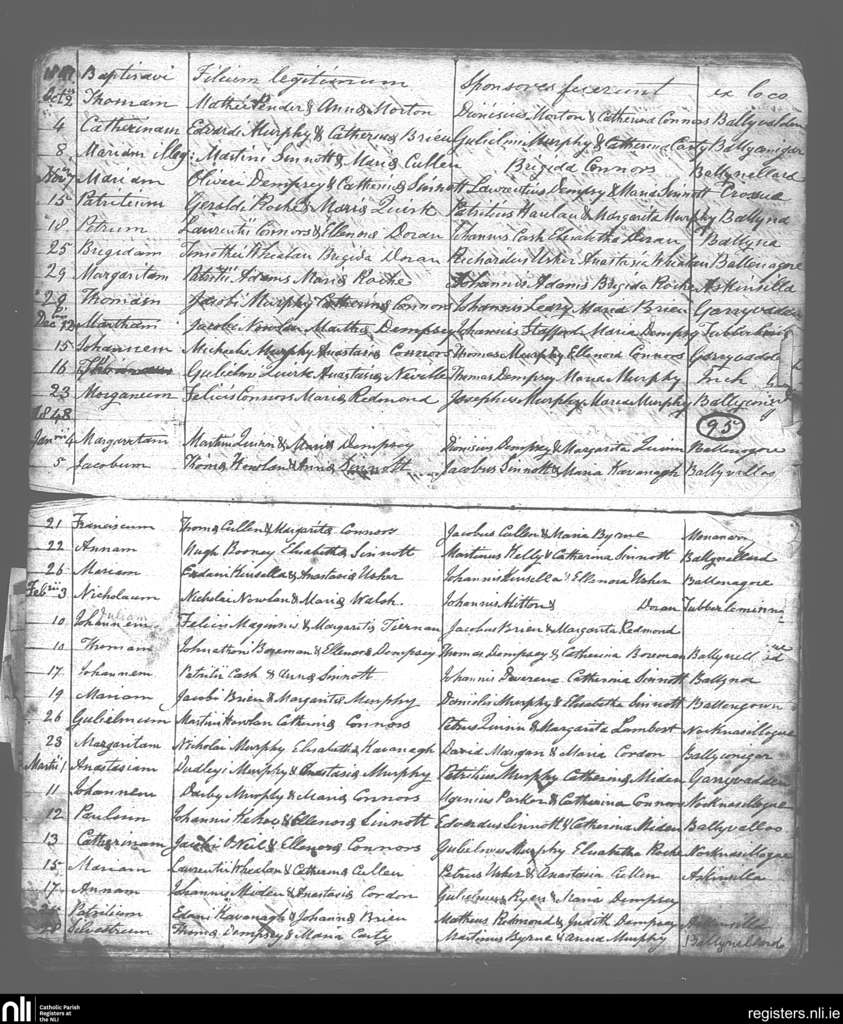 1847 Baptisavi Filium legitimum Sponsores fuerunt ex loco
Octris 2 Thomam Mathei Pender & Anna Morton Dionisius Morton & Catherina Connors Ballyvalden
4 Catherinam Edvardi Murphy & Catherina Brien Gulielmus Murphy & Catherina Carty Ballyconigar
8 Mariam illeg: Martini Sinnott & Maria Cullen Brigida Connors Ballynellard
Nov 7 Mariam Oliveri Dempsey & Catherina Sinnott Laurentius Dempsy & Maria Sinnott
15 Patritium Geraldi Roche & Maria Quirk Patritius & Margarita Murphy Ballyna
18 Petrum Laurentii Connors & Ellenora Doran Johannis Cash Elisabetha Doran Ballyna
25 Brigidam Timothei Whealan Brigida Doran Richardus Usher Anastasia Whealan Ballenagore
29 Margaritam Patritii Adams Maria Roche Johannis Adams Brigida Roche Askinvilla
29 Thomam Jacobi Murphy Catherina Connors Johannis Leary Maria Brien Garryvadden
Decbris 12 Martham Jacobi Nowlan Martha Dempsey Johannis Stafford Maria Dempsy
15 Johannem Michaelis Murphy Anastasia Connors Thomas Murphy Ellenora Connors Garryvadden
16 Gulielmi Quirk Anastasia Neville Thomas Dempsey Maria Murphy Inch
23 Morganum Felicis Connors Maria Redmond Josephus Murphy Maria Murphy Ballyconigar
1848 95
Janrii 4 Margaritam Martini Quinn & Maria Dempsey Dionisius Dempsey & Margarita Quinn Ballenagore
5 Jacobum Thoma Nowlan & Anna Sinnott Jacobus Sinnott & Maria Kavanagh Ballyvalloo
21 Franciscum Thoma Cullen & Margarita Connors Jacobus Cullen & Maria Byrne
22 Annam Hugh Rooney Elisabetha Sinnott Martinus Kelly & Catherina Sinnott Ballynellard
26 Mariam Edani Kinsella & Anastasia Usher Johannis Kinsella & Ellenora Usher Ballenagore
Febrii 3 Nicholaum Nicholai Nowlan & Maria Walsh. Johannis Hitton & Doran
10 Johannem Felicis & Margarita Tiernan Jacobus Brien & Margarita Redmond
10 Thomam Johnathon Boreman & Ellenora Dempsey Thomas Dempsey & Catherina Boreman Ballynellard
17 Johannem Patritii Cash & Anna Sinnott Johannis Devereux Catherina Sinnott Ballyna
19 Mariam Jacobi Brien & Margarita Murphy Danielis Murphy & Elisabetha Sinnott Ballengown
26 Gulielmum Martini Nowlan Catherina Connors Petrus Quinn & Margarita Lambert Nocknasillogue
28 Margaritam Nicholai Murphy Elisabetha Kavanagh David Mangan & Maria Cordon Ballyconigar
Martii 1 Anastasiam Dudleyi Murphy & Anastasia Murphy Patritius Murphy Catherina Miden Garryvadden
11 Johannem Darby Murphy & Maria Connors Parker & Catherina Connors Nocknasillogue
12 Paulum Johannis & Ellenora Sinnott Edvardus Sinnott & Catherina Miden Ballyvalloo
13 Catharinam Jacobi O'Neil & Ellenora Connors Gulielmus Murphy Elisabetha Roche Nocknasillogue
15 Mariam Laurentii Whealan & Catherina Cullen Petrus Usher & Anastasia Cullen Askinvilla
17 Annam Johannis Miden & Anastasia Cordon Gulielmus Ryan & Maria Dempsey
Patritium Edani Kavanagh & Johanna Brien Matheus Redmond & Judith Dempsey Askinvilla
28 Silvestrum Thoma Dempsey & Maria Carty Martinus Byrne & Anna Murphy Ballynellard
nli Catholic Parish Registers at the NLI registers.nli.ie